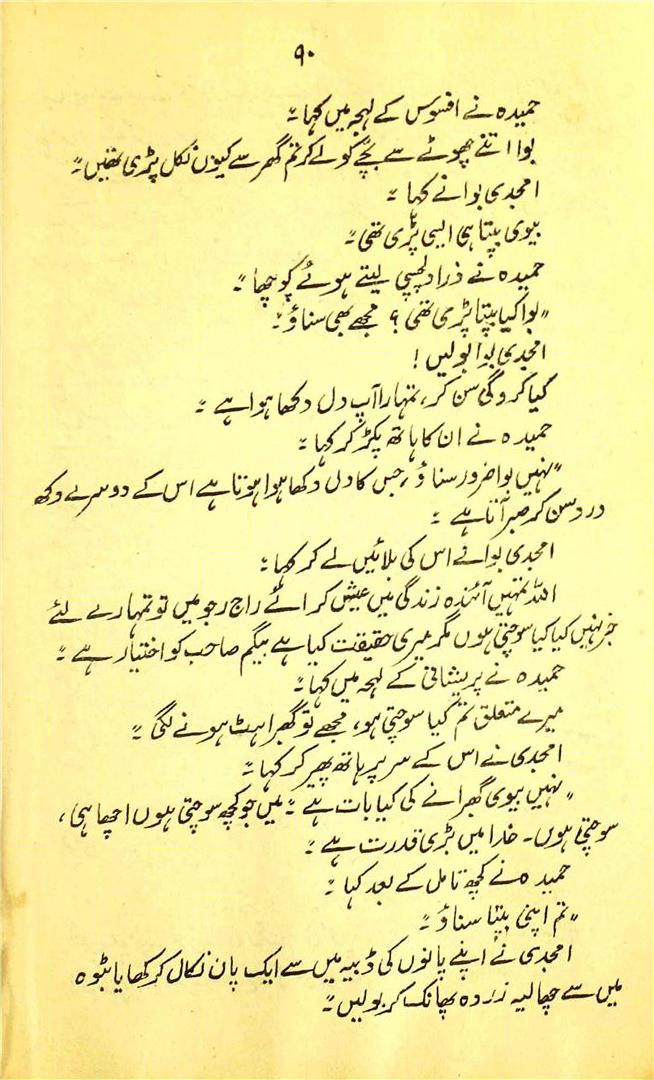 ۹۰
حمیدہ نے افسوس کے لہجہ میں کہا۔"
بوا اتنے چھوٹے سے بچّے کو لے کر تم گھر سے کیوں نکل پڑی تھیں۔"
امجدی بوا نے کہا ۔"
بیوی بپتا ہی ایسی پڑی تھی۔"
حمیدہ نے ذرا دلچسپی لیتے ہوئے پوچھا۔"
"بوا کیا بپتا پڑی تھی؟ مجھے بھی سناؤ۔"
امجدی بوا بولیں!
کیا کروگی سن کر، تمہارا آپ دل دکھا ہوا ہے ۔"
حمیدہ نے ان کا ہاتھ پکڑ کر کہا۔"
"نہیں بوا ضرور سناؤ، جس کا دل دکھا ہوا ہوتا ہے اس کے دوسرے دکھ
درد سن کر صبر آتا ہے ۔"
امجدی بوا نے اس کی بلائیں لے کر کہا۔"
اللہ تمہیں آئندہ زندگی میں عیش کرائے راج رجو میں تو تمہارے لئے
خبر نہیں کیا کیا سوچتی ہوں مگر میری حقیقت کیا ہے بیگم صاحب کو اختیار ہے ۔"
حمیدہ نے پریشانی کے لہجہ میں کہا۔"
میرے متعلق تم کیا سوچتی ہو، مجھے تو گھبراہٹ ہونے لگی ۔"
امجدی نے اس کے سر پر ہاتھ پھیر کر کہا۔"
"نہیں بیوی گھبرانے کی کیا بات ہے ۔" میں جو کچھ سوچتی ہوں اچھا ہی،
سوچتی ہوں۔ خدا میں بڑی قدرت ہے ۔"
حمیدہ نے کچھ تامل کے بعد کہا ۔"
"تم اپنی بپتا سناؤ۔"
امجدی نے اپنے پانوں کی ڈبیہ میں سے ایک پان نکال کر کھایا بٹوہ
میں سے چھالیہ زردہ پھانک کر بولیں۔"